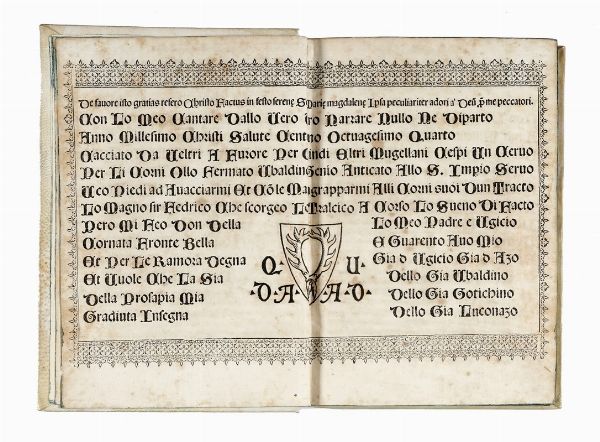 De favore isto gratias refero Christo Factus in festo serene S Marie magdalene Ipsa peculiariter adori a' Deū p̄ me peccatori.
Con Lo Meo Cantare Dallo Vero Vero Narrare Nullo Ne Diparto
Anno Millesimo Christi Salute Centno Octuagesimo Quarto
Cacciato Da Veltri A Furore Per Quindi Eltri Mugellani Cespi Un Cervo
Per Li Corni Ollo Fermato Ubaldin Genio Anticato Allo S. Impio Servo
Uco Piedi ad Avacciarmi Et Cō le Mai grapparmi Alli Corni suoi Dun Tracto
Lo Magno sir Fedrico Che scorgeo Le Tralcico A Corso Lo Sueno Di Facto
Pero Mi Feo Don Della
Cornata Fronte Bella
Et Per Le Ramora Degna
Et Uole Che La Sia
Della Prosapia Mia
Gradiuta Insegna
Q. U.
·D·A·A·D·
Lo Meo Padre e Ugicio
E Guarento Auo Mio
Gia d Ugicio Gia d Azo
Dello Gia Ubaldino
Dello Gia Gotichino
Dello Gia Luconazo